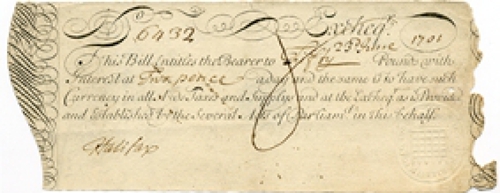 6432 Excheqr.
23d June 1701
This Bill Entitles the Bearer to Pounds with
Interest at Two pence a day and the same is to have such
Currency in all Aides Taxes and Supplys and at the Excheqr. as is Provided
and Established by the Several Acts of Parliamt. in this behalfe
Halifax